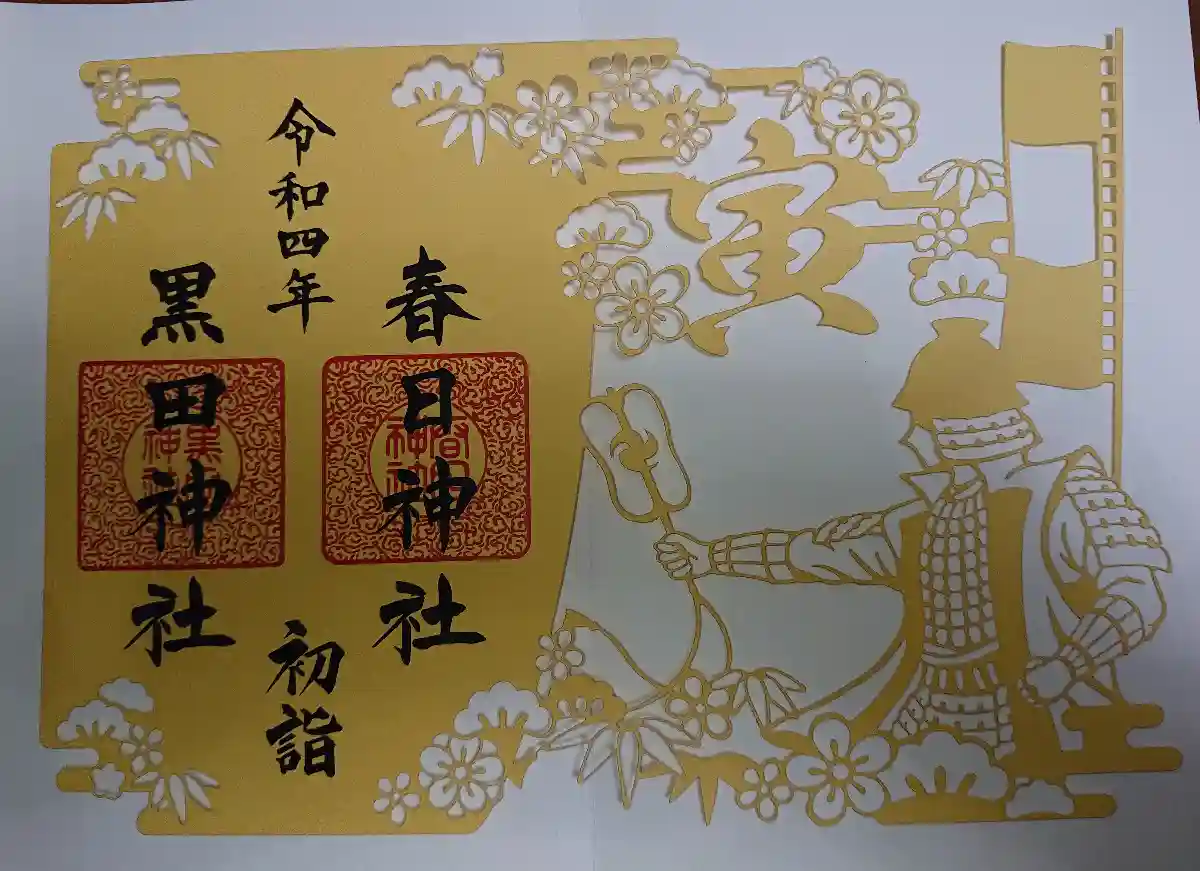 寅
春日神社
令和四年
初詣
黒田神社